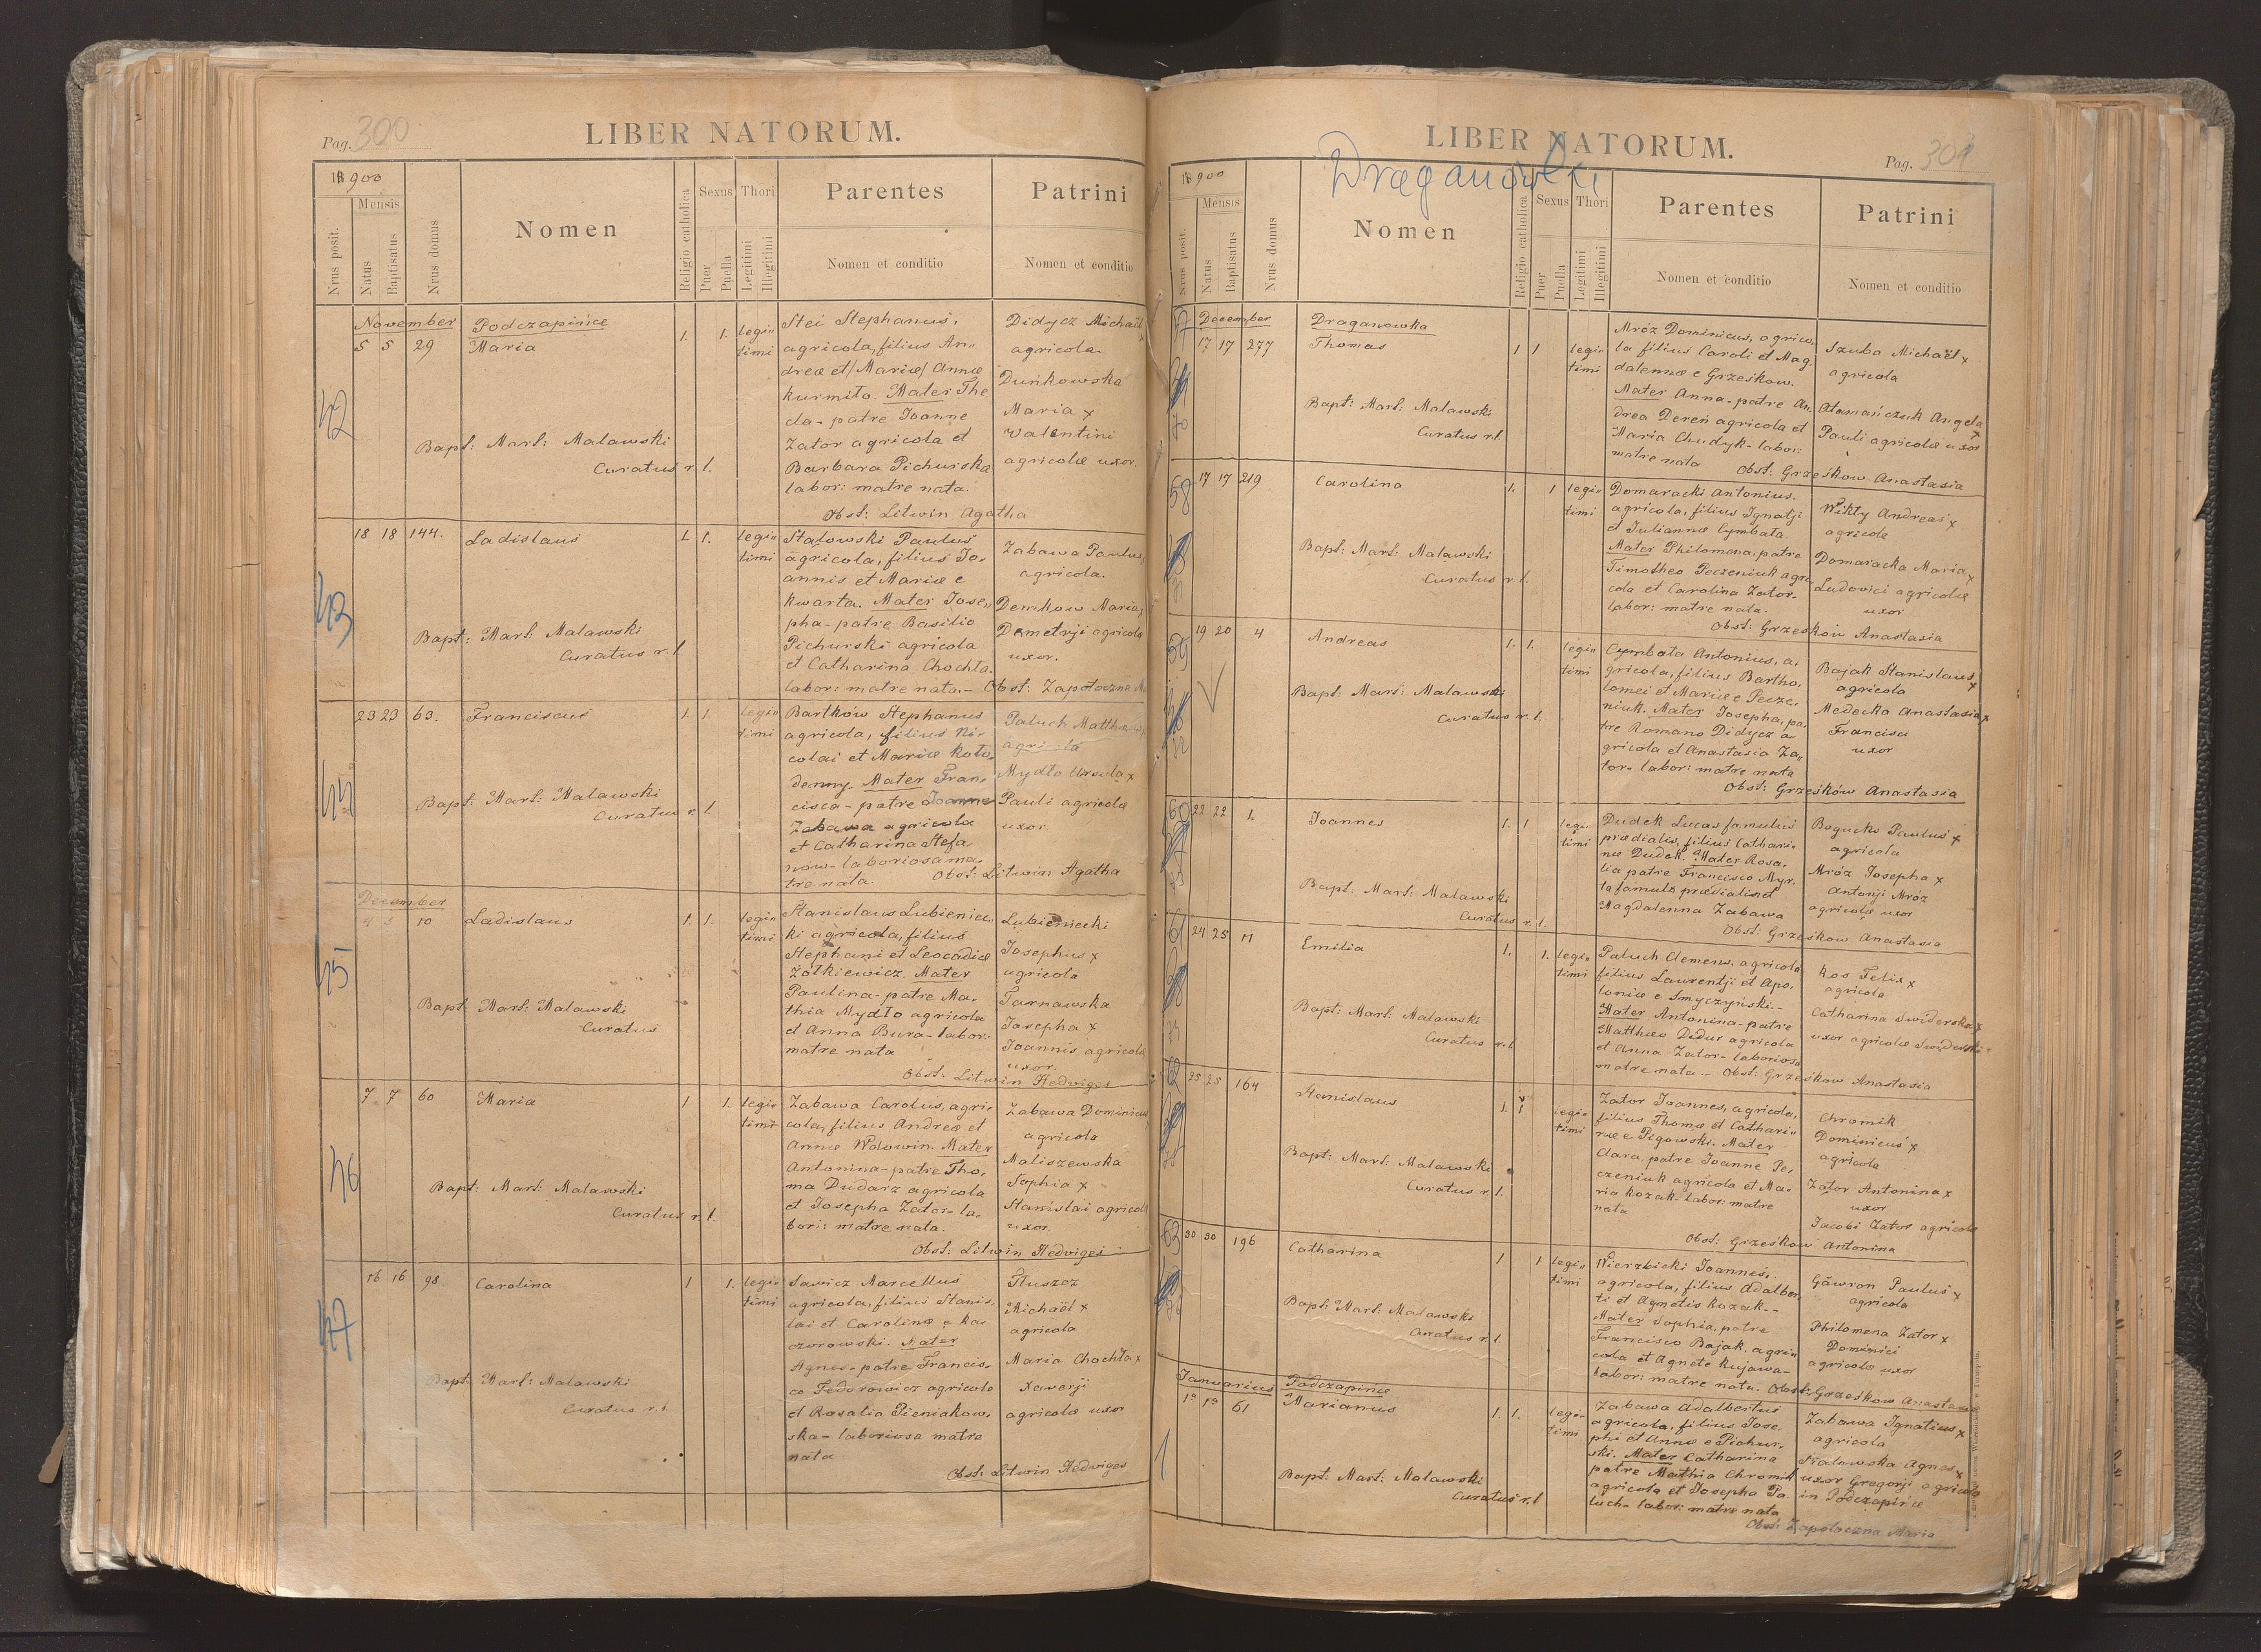 Pag. 300
LIBER NATORUM.
1900
Nrus posit.
Mensis
Natus
Baptisatus
Nrus domus
Nomen
Religio catholica
Sexus
Puer
Puella
Thori
Legitimi
Illegitimi
Parentes
Nomen et conditio
Patrini
Nomen et conditio
42
November
5 5 29
Podczapińce
Maria
1. 1.
legi-
timi
Bapt: Mart: Malawski
Curatus r. l.
Stei Stephanus,
agricola, filius An-
dreæ et /Mariæ/ Annæ
Kurmito. Mater The
cla - patre Joanne
Zator agricola et
Barbara Pichurska
labor: matre nata.
Obst: Litwin Agatha
Didycz Michaël x
agricola.
Duńkowska
Maria x
Valentini
agricolæ uxor.
43
18 18 144.
Ladislaus
1. 1.
legi-
timi
Bapt: Mart: Malawski
Curatus r. l.
Stałowski Paulus
agricola, filius Jo-
annis et Mariæ e
Kwarta. Mater Jose-
pha - patre Basilio
Pichurski agricola
et Catharina Chochła.
labor: matre nata. - Obst: Zapotoczna
Zabawa Paulus,
agricola.
Demkow Maria,
Demetrji agricolæ
uxor.
44
23 23 63.
Franciscus
1. 1.
legi-
timi
Bapt: Mart: Malawski
Curatus r. l.
Bartków Stephanus
agricola, filius Ni-
colai et Mariæ Koło-
denny. Mater Fran-
cisca - patre Joanne
Zabawa agricola
et Catharina Stefa-
nów - laboriosa ma-
tre nata. Obst: Litwin Agatha
Paluch Matthæus,
agricola
Mydło Ursula x
Pauli agricolæ
uxor.
45
December
4 5 10
Ladislaus
1. 1.
legi-
timi
Bapt: Mart: Malawski
Curatus
Stanislaus Lubieniec-
ki agricola, filius
Stephani et Leocadiæ
Żółkiewicz. Mater
Paulina - patre Ma-
thia Mydło agricola
et Anna Bura - labor:
matre nata
Obst: Litwin Hedviges
Lubieniecki
Josephus x
agricola
Tarnawska
Josepha x
Joannis agricolæ
uxor.
46
7 7 60
Maria
1 1.
legi-
timi
Bapt: Mart: Malawski
Curatus r. l.
Zabawa Carolus, agri-
cola, filius Andreæ et
Annæ Wołowin. Mater
Antonina - patre Tho-
ma Dudarz agricola
et Josepha Zator - la-
bori: matre nata.
Obst: Litwin Hedviges
Zabawa Dominicus
agricola
Maliszewska
Sophia x
Stanislai agricolæ
uxor.
47
16 16 98
Carolina
1 1.
legi-
timi
Bapt: Mart: Malawski
Curatus r. l.
Sawicz Marcellus
agricola, filius Stanis-
lai et Carolinæ e Ka-
czorowski. Mater
Agnes - patre Francis-
co Fedorowicz agricola
et Rosalia Pieniakow-
ska - laboriosa matre
nata
Obst: Litwin Hedviges
Tłuszcz
Michaël x
agricola
Maria Chochła x
Xawerji
agricolæ uxor
Pag. 301
LIBER NATORUM.
Draganówka
1900
Nrus posit.
Mensis
Natus
Baptisatus
Nrus domus
Nomen
Religio catholica
Sexus
Puer
Puella
Thori
Legitimi
Illegitimi
Parentes
Nomen et conditio
Patrini
Nomen et conditio
57
December
17 17 277
Draganowka
Thomas
1 1
legi-
timi
Bapt: Mart: Malawski
Curatus r. l.
Mróz Dominicus, agrico-
la filius Caroli et Mag-
dalennæ e Grześkow.
Mater Anna - patre An-
drea Dereń agricola et
Maria Chudyk - labor:
matre nata
Obst: Grześkow Anastasia
Szuba Michaël x
agricola
Atamańczuk Angela x
Pauli agricolæ uxor
58
17 17 219
Carolina
1. 1
legi-
timi
Bapt: Mart: Malawski
Curatus r. l.
Domaracki Antonius.
agricola, filius Ignatji
et Juliannæ Cymbała.
Mater Philomena, patre
Timotheo Peczeniuk agri-
cola et Carolina Zator.
labor: matre nata.
Obst: Grześków Anastasia
Wikty Andreas x
agricola
Domaracka Maria x
Ludovici agricolæ
uxor
59
19 20 4
Andreas
1. 1.
legi-
timi
Bapt: Mart: Malawski
Curatus r. l.
Cymbała Antonius, a-
gricola, filius Bartho-
lomei et Mariæ e Pecze-
niuk. Mater Josepha, pa-
tre Romano Didycz a-
gricola et Anastasia Za-
tor - labor: matre nata
Obst: Grześków Anastasia
Bajak Stanislaus x
agricola
Medecka Anastasia x
Francisci
uxor
60
22 22 1.
Joannes
1. 1
legi-
timi
Bapt: Mart: Malawski
Curatus r. l.
Dudek Lucas famulus
prædialis, filius Cathari-
næ Dudek. Mater Rosa-
lia patre Francisco Myr-
ta famulo prædialis et
Magdalenna Zabawa
Obst: Grześkow Anastasia
Bogucko Paulus x
agricola
Mróz Josepha x
Antonji Mróz
agricolæ uxor
61
24 25 11
Emilia
1. 1.
legi-
timi
Bapt: Mart: Malawski
Curatus r. l.
Paluch Clemens. agricola
filius Laurentji et Apo-
loniæ e Smyczyński. -
Mater Antonina - patre
Matthæo Didur agricola
et Anna Zator - laboriosa
matre nata. - Obst: Grześkow Anastasia
Kos Felix x
agricola
Catharina Świderska x
uxor agricolæ Świderski
62
25 25 164
Stanislaus
1. 1
legi-
timi
Bapt: Mart: Malawski
Curatus r. l.
Zator Joannes, agricola,
filius Thomæ et Cathari-
næ e Pigowski. Mater
Clara, patre Joanne Pe-
czeniuk agricola et Ma-
ria Kozak - labor: matre
nata
Obst: Grześkow Antonina
Chromik
Dominicus x
agricola
Zator Antonina x
uxor
Jacobi Zator agricolæ
63
30 30 196
Catharina
1 1
legi-
timi
Bapt: Mart: Malawski
Curatus r. l.
Wierzbicki Joannes,
agricola, filius Adalber-
ti et Agnetis Kozak. -
Mater Sophia, patre
Francisco Bajak. agri-
cola et Agnete Kujawa -
labor: matre nata. Obst: Grześkow Anastasia
Gawron Paulus x
agricola
Philomena Zator x
Dominici
agricolæ uxor
1
Januarius Podczapińce
61
Marianus
1. 1.
legi-
timi
Bapt: Mart: Malawski
Curatus r. l
Zabawa Adalbertus
agricola, filius Jose-
phi et Annæ e Pichur-
ski. Mater Catharina
patre Mathia Chromik
agricola et Josepha Pa-
luch - labor: matre nata
Obst: Zapotoczna Maria
Zabawa Ignatius x
agricola
Stalowska Agnes x
uxor Gregorji agricolæ
in Podczapińce